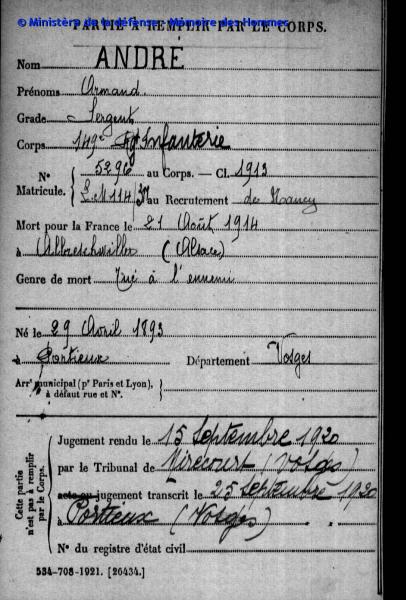 © Ministère de la défense - Mémoire des Hommes
PARTIE À REMPLIR PAR LE CORPS.
Nom ANDRÉ
Prénoms Armand
Grade Sergent
Corps 149e Rgt Infanterie
N° 5296 au Corps. — Cl. 1913
Matricule. 114 au Recrutement de Nancy
Mort pour la France le 21 Août 1914
à Abreschwiller (Alsace)
Genre de mort Tué à l'ennemi
Né le 29 Avril 1893
à Portieux Département Vosges
Arrt municipal (pr Paris et Lyon), à défaut rue et N°.
Cette partie n'est pas à remplir par le Corps.
Jugement rendu le 15 Septembre 1920
par le Tribunal de Mirecourt (Vosges)
acte ou jugement transcrit le 25 Septembre 1920
à Portieux (Vosges)
N° du registre d'état civil
534-708-1921. [26434.]